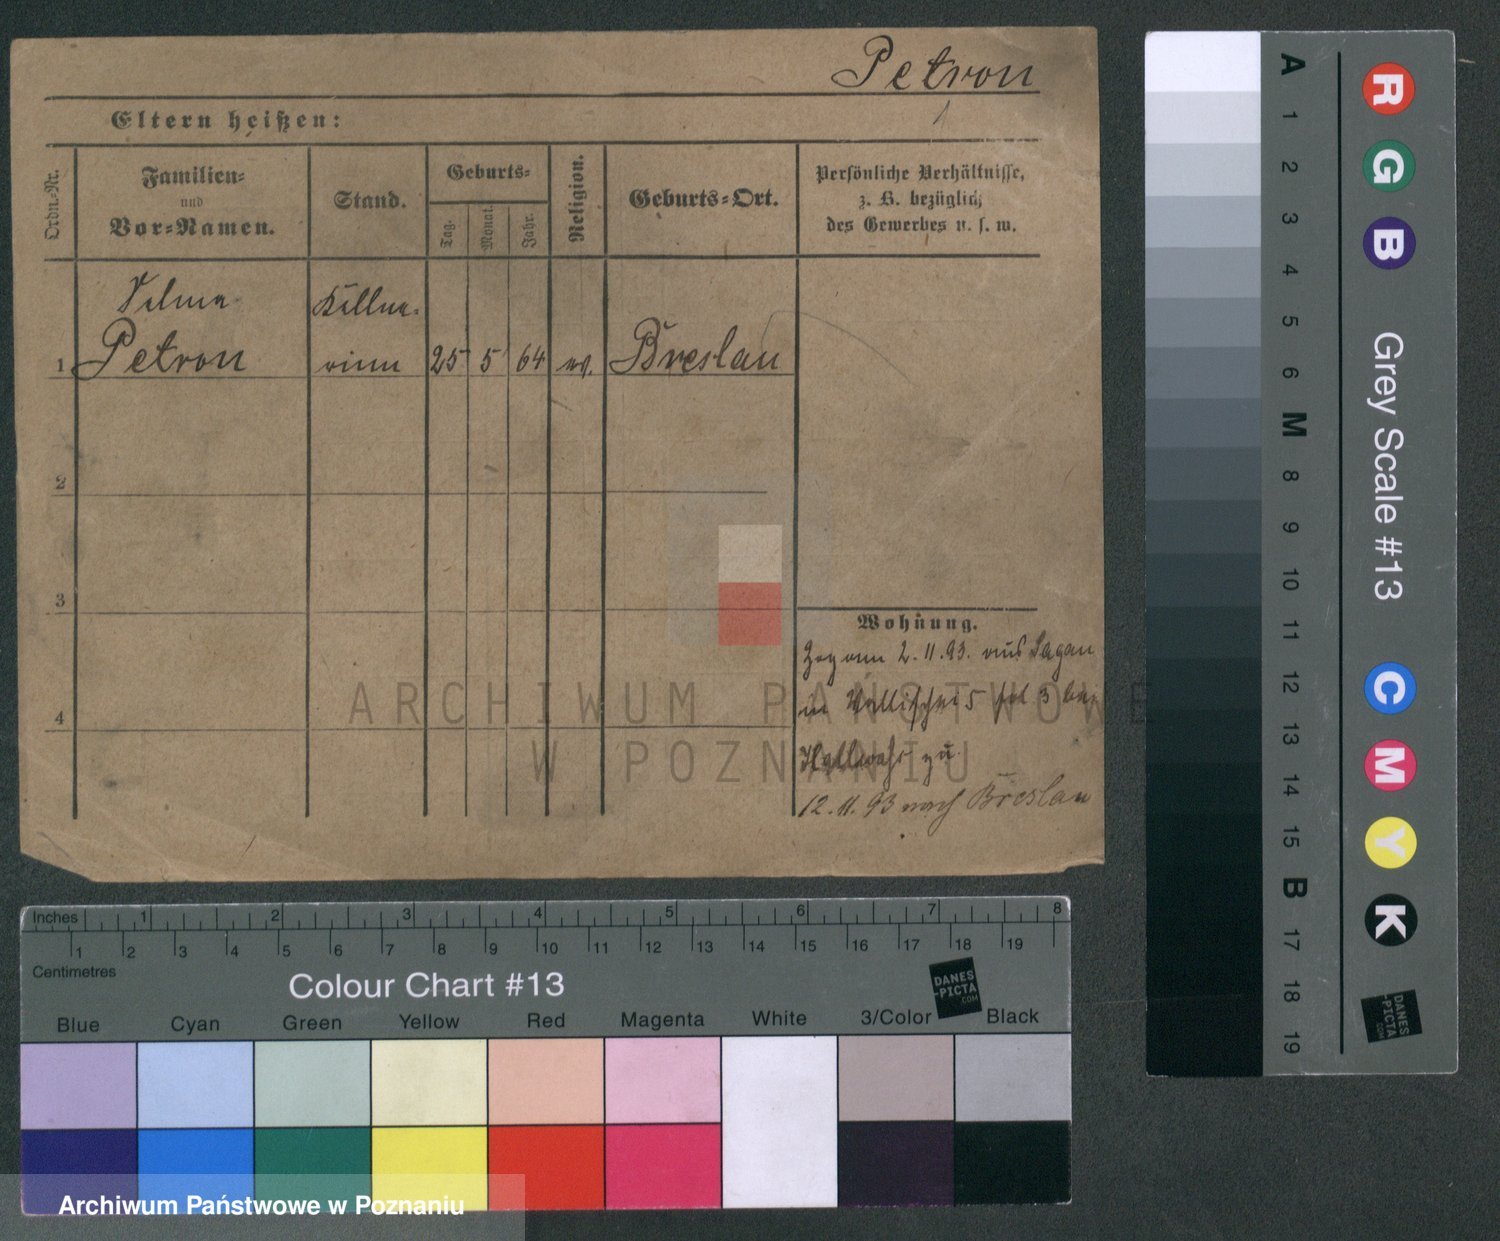 Petron
Eltern heißen:
Ordn.-Nr.
Familien-
und
Vor-Namen.
Stand.
Geburts-
Tag.
Monat.
Jahr.
Religion.
Geburts-Ort.
Persönliche Verhältnisse,
z. B. bezüglich
des Gewerbes u. s. w.
Kellne-
1 Petron rinn 25 5 64 ev. Breslau
2
3
4
Wohnung.
Zog am 2.11.93. aus Sagan
in Wallischei 5 3 bei
zu
12.11.93 nach Breslau
ARCHIWUM PAŃSTWOWE
W POZNANIU
Inches 1 2 3 4 5 6 7 8
1 2 3 4 5 6 7 8 9 10 11 12 13 14 15 16 17 18 19
Centimetres
Colour Chart #13
DANES
-PICTA
.COM
Blue Cyan Green Yellow Red Magenta White 3/Color Black
Archiwum Państwowe w Poznaniu
A 1 2 3 4 5 6 M 8 9 10 11 12 13 14 15 B 17 18 19
R G B
Grey Scale #13
C M Y K
DANES
-PICTA
.COM